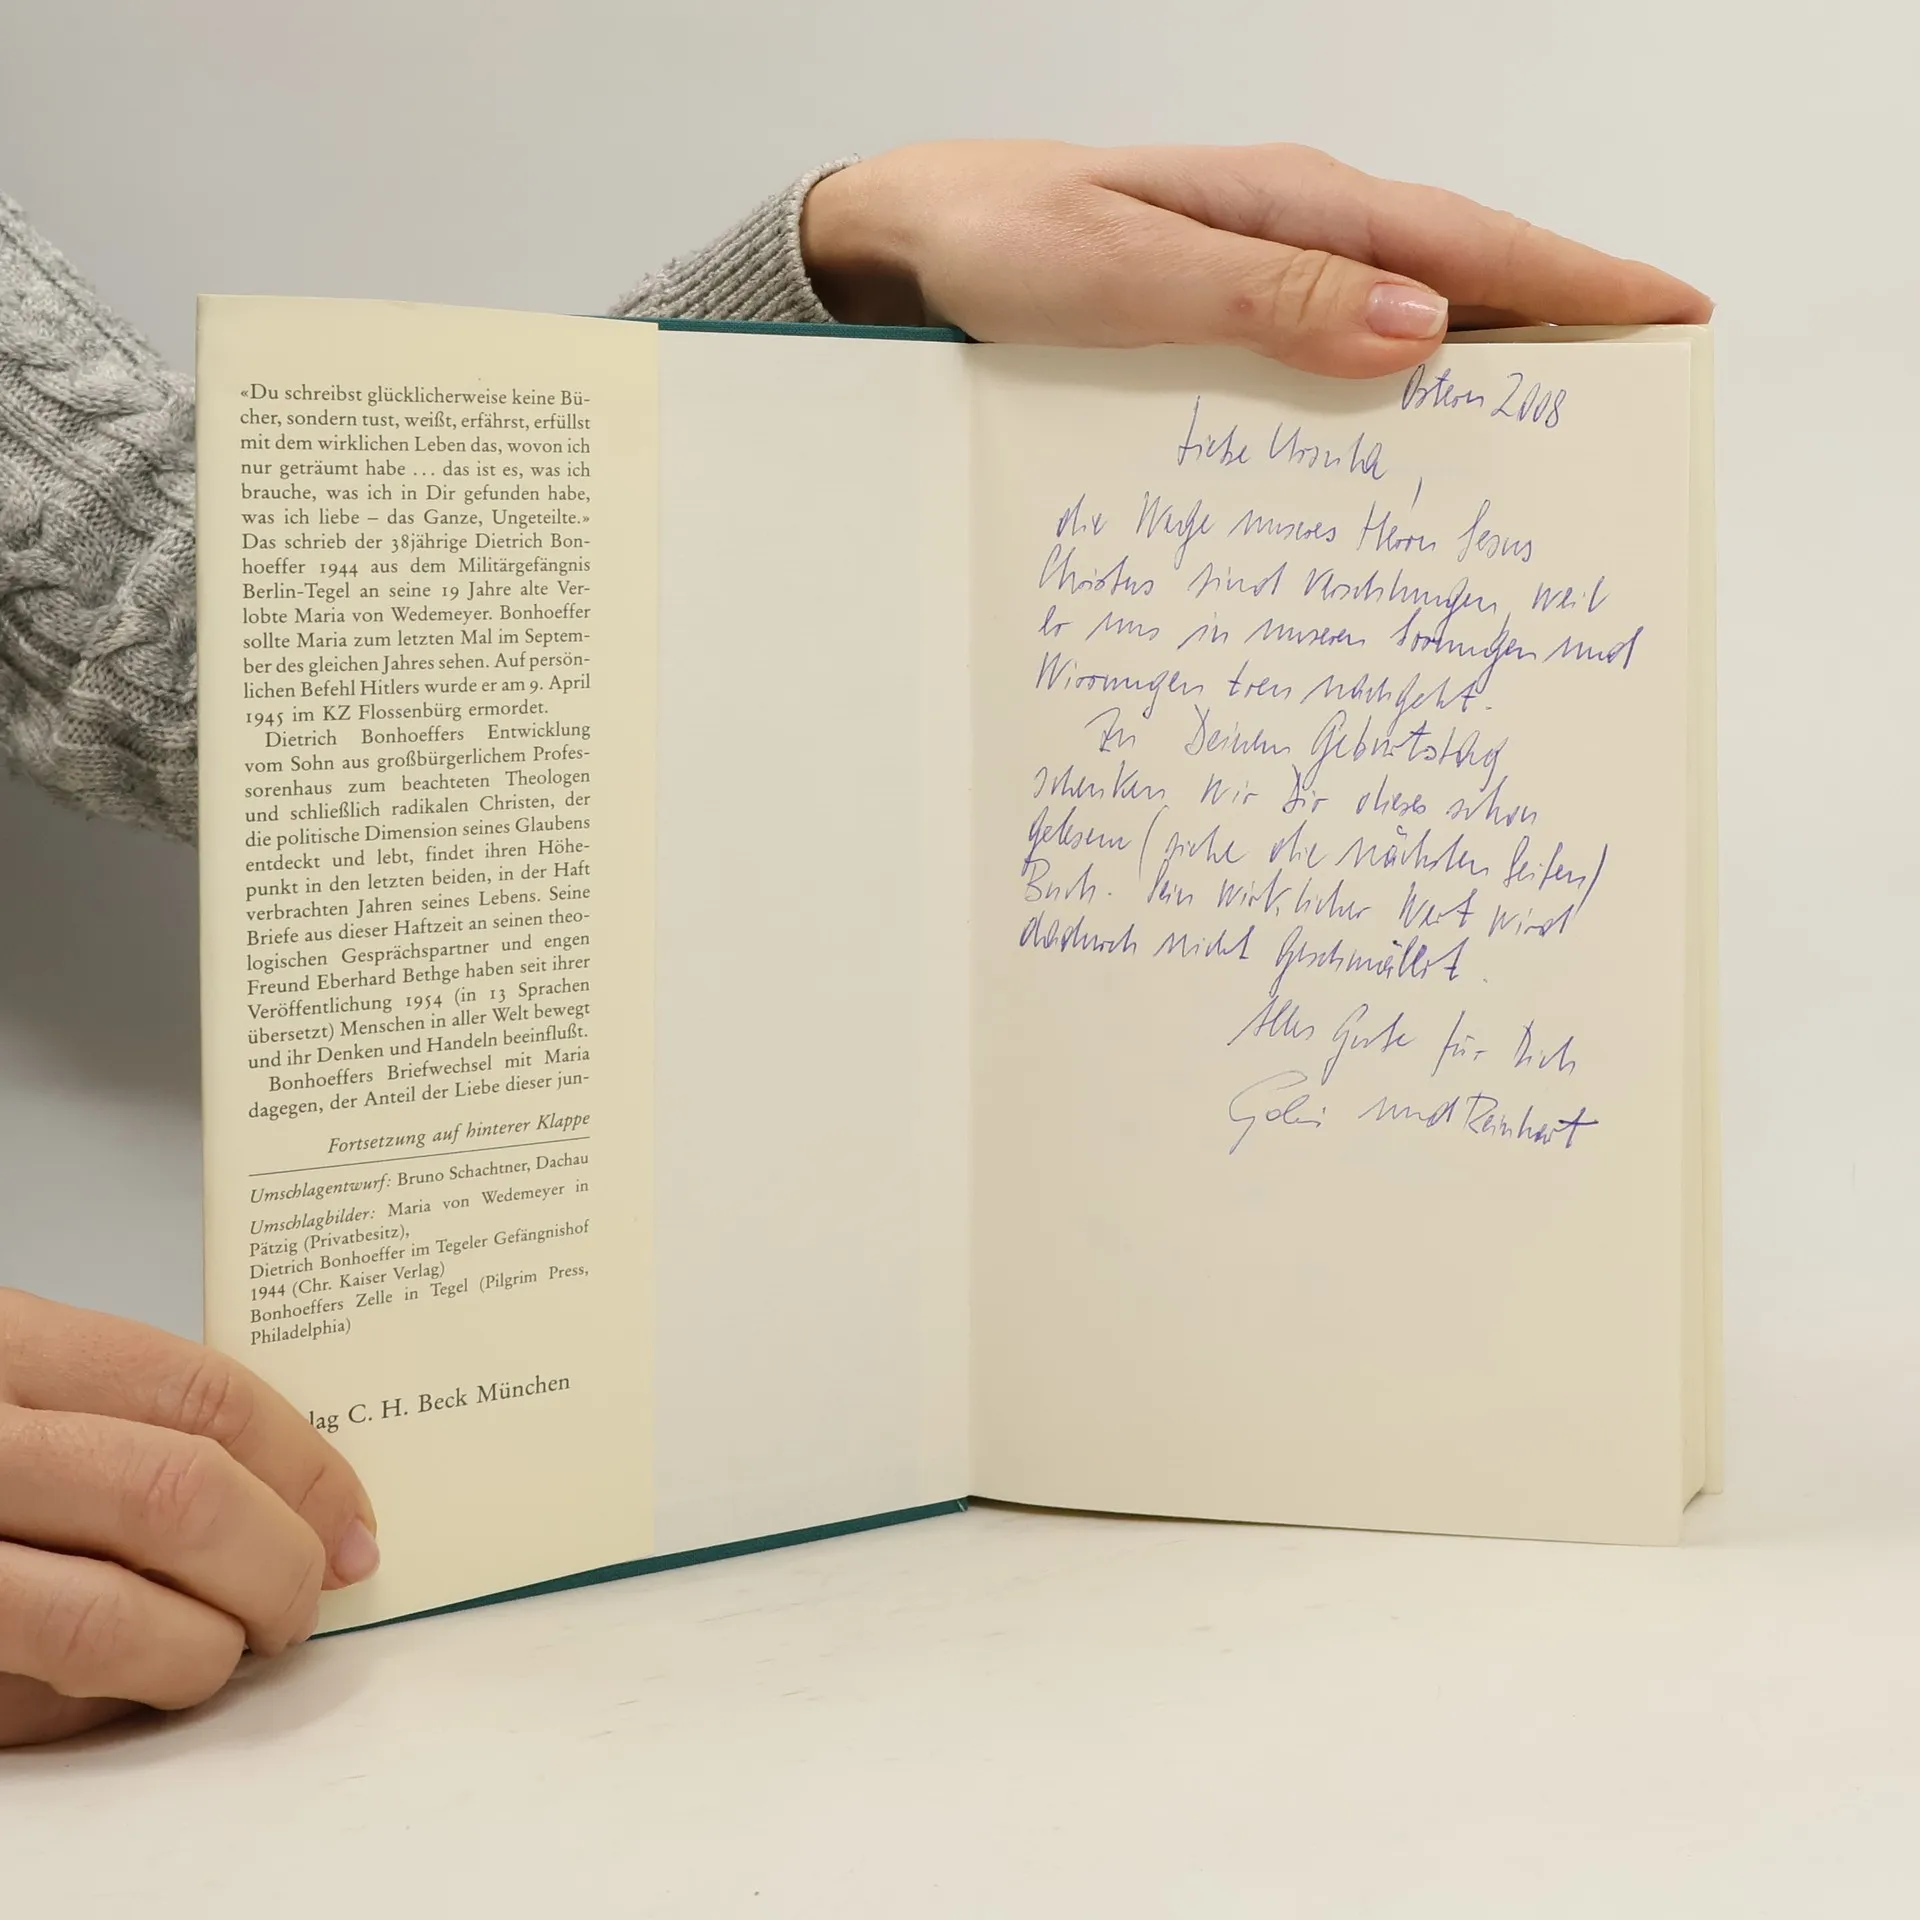 «Du schreibst glücklicherweise keine Bü-
cher, sondern tust, weißt, erfährst, erfüllst
mit dem wirklichen Leben das, wovon ich
nur geträumt habe ... das ist es, was ich
brauche, was ich in Dir gefunden habe,
was ich liebe – das Ganze, Ungeteilte.»
Das schrieb der 38jährige Dietrich Bon-
hoeffer 1944 aus dem Militärgefängnis
Berlin-Tegel an seine 19 Jahre alte Ver-
lobte Maria von Wedemeyer. Bonhoeffer
sollte Maria zum letzten Mal im Septem-
ber des gleichen Jahres sehen. Auf persön-
lichen Befehl Hitlers wurde er am 9. April
1945 im KZ Flossenbürg ermordet.
Dietrich Bonhoeffers Entwicklung
vom Sohn aus großbürgerlichem Profes-
sorenhaus zum beachteten Theologen
und schließlich radikalen Christen, der
die politische Dimension seines Glaubens
entdeckt und lebt, findet ihren Höhe-
punkt in den letzten beiden, in der Haft
verbrachten Jahren seines Lebens. Seine
Briefe aus dieser Haftzeit an seinen theo-
logischen Gesprächspartner und engen
Freund Eberhard Bethge haben seit ihrer
Veröffentlichung 1954 (in 13 Sprachen
übersetzt) Menschen in aller Welt bewegt
und ihr Denken und Handeln beeinflußt.
Bonhoeffers Briefwechsel mit Maria
dagegen, der Anteil der Liebe dieser jun-
Fortsetzung auf hinterer Klappe
Umschlagentwurf: Bruno Schachtner, Dachau
Umschlagbilder: Maria von Wedemeyer in
Pätzig (Privatbesitz),
Dietrich Bonhoeffer im Tegeler Gefängnishof
1944 (Chr. Kaiser Verlag)
Bonhoeffers Zelle in Tegel (Pilgrim Press,
Philadelphia)
lag C. H. Beck München
Ostern 2008
Liebe Ursula,
die Wege unseres Herrn Jesus
Christus sind, weil
Er uns in unseren Irrungen und
Wirrungen treu nachgeht.
Zu Deinem Geburtstag
schenken wir Dir dieses schon
gelesene (siehe die nächsten Seiten)
Buch. Sein wirklicher Wert wird
dadurch nicht geschmälert.
Alles Gute für Dich
und Reinhart